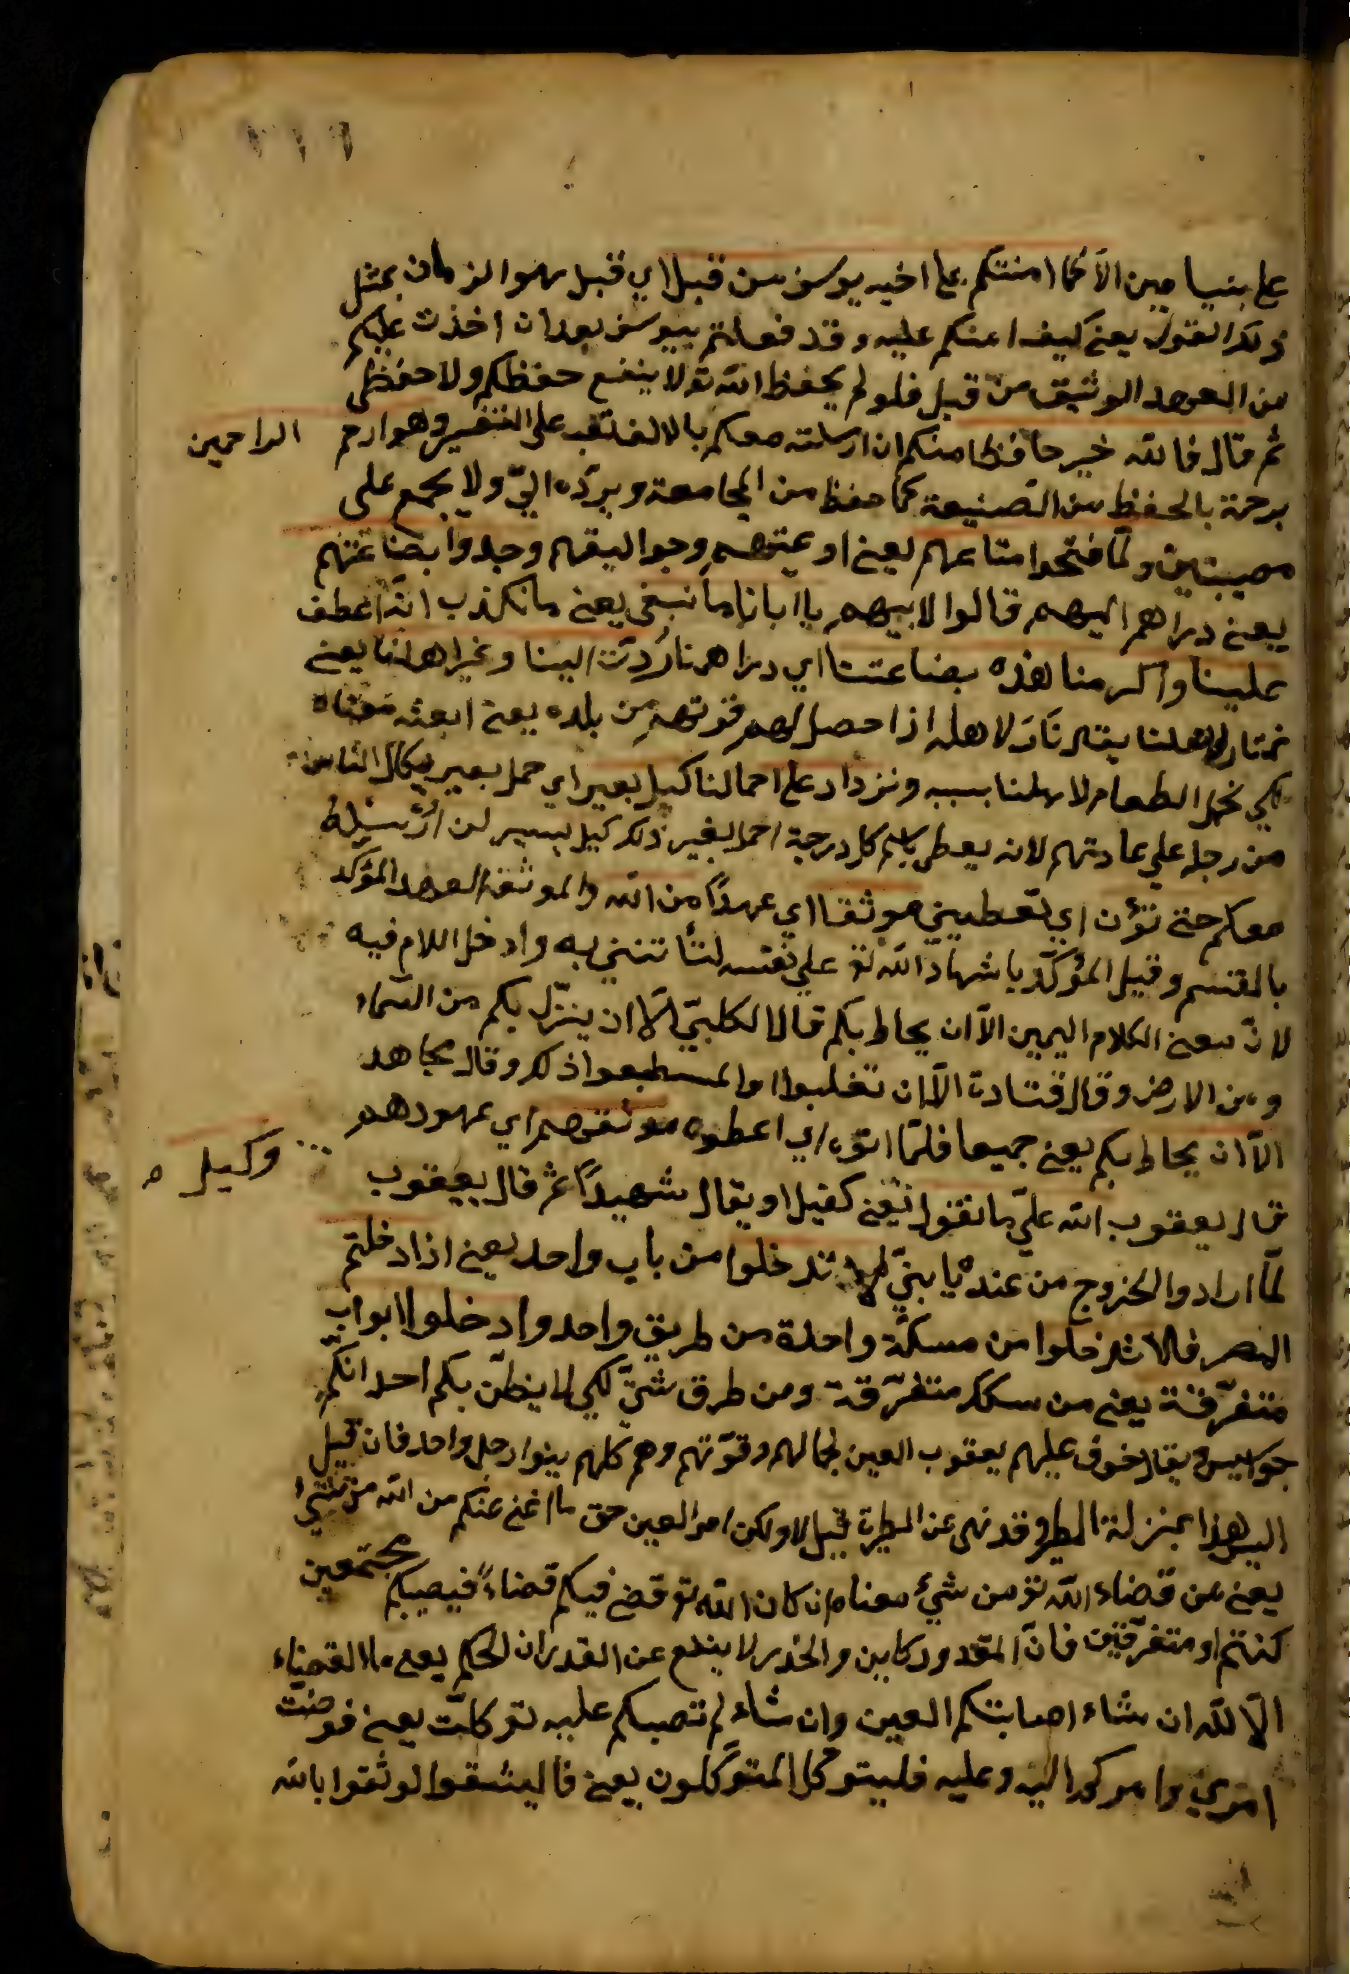 على بنيامين الا كما امنتكم على اخيه يوسف من قبل اي قبل هذا الزمان بمثل
ذلك القول يعنى كيف امنكم عليه وقد فعلتم بيوسف بعد ان اخذت عليكم
من العهد الوثيق من قبل فلو لم يحفظ الله تع لا ينفع حفظكم ولا حفظى
ثم قال فالله خير حافظا منكم ان ارسلته معكم بالالف نصب على التفسير وهو ارحم الراحمين
برحمة بالحفظ من الضيعة كما حفظ من المجامعة ويرده الىّ ولا يجمع على
مصيبتين ولما فتحوا متاعهم يعنى اوعيتهم وجواليقهم وجدوا بضاعتهم
يعنى دراهم اليهم قالوا لابيهم يا ابانا ما نبغى يعنى ما نكذب انه اعطف
علينا واكرمنا هذه بضاعتنا اي دراهمنا ردت الينا ونمير اهلنا يعنى
نمتار لاهلنا يقال مار لاهله اذا حصل لهم قوتهم من بلده يعنى ابعثه معنا
لكي نحمل الطعام لاهلنا بسببه ونزداد على احمالنا كيل بعير اي حمل بعير
من رجل على عادتهم لانه يعطى باسم كل رجل حمل بعير ذلك كيل يسير لن ارسله
معكم حتى تؤتون اي تعطينى موثقا اي عهدًا من الله والموثق العهد المؤكد
بالقسم وقيل المؤكد باشهاد الله تع على نفسه لتأتننى به وادخل اللام فيه
لان معنى الكلام اليمين الا ان يحاط بكم قال الكلبي الا ان ينزل بكم من السماء
ومن الارض وقال قتادة الا ان تغلبوا ولم تستطيعوا ذلك وقال مجاهد
الا ان يحاط بكم يعنى جميعا فلما اتوه اي اعطوه موثقهم اي عهودهم
قال يعقوب الله على ما نقول وكيل يعنى كفيلا ويقال شهيدًا ثم قال يعقوب
لما ارادوا الخروج من عنده يا بنيّ لا تدخلوا من باب واحد يعنى اذا دخلتم
المصر فلا تدخلوا من سكة واحدة من طريق واحد وادخلوا ابواب
متفرقة يعنى من سكك متفرقة ومن طرق شتى لكي لا يظن بكم احد انكم
جواسيس ويقال خوف عليهم يعقوب العين لجمالهم وقوتهم وهم كلهم بنوا رجل واحد فان قيل
اليس هذا بمنزلة الطيرة وقد نهى عن الطيرة قيل لا ولكن امر العين حق ما اغنى عنكم من الله من شيء
يعنى من قضاء الله تع من شيء معناه ان كان الله تع قضى فيكم قضاء فيصيبكم مجتمعين
كنتم او متفرقين فان المقدور كاين والحذر لا ينفع عن القدر ان الحكم يعنى ما القضاء
الا لله ان شاء اصابتكم العين وان شاء لم تصبكم عليه توكلت يعنى فوضت
امري وامركم اليه وعليه فليتوكل المتوكلون يعنى فاليثقوا الوثقوا بالله